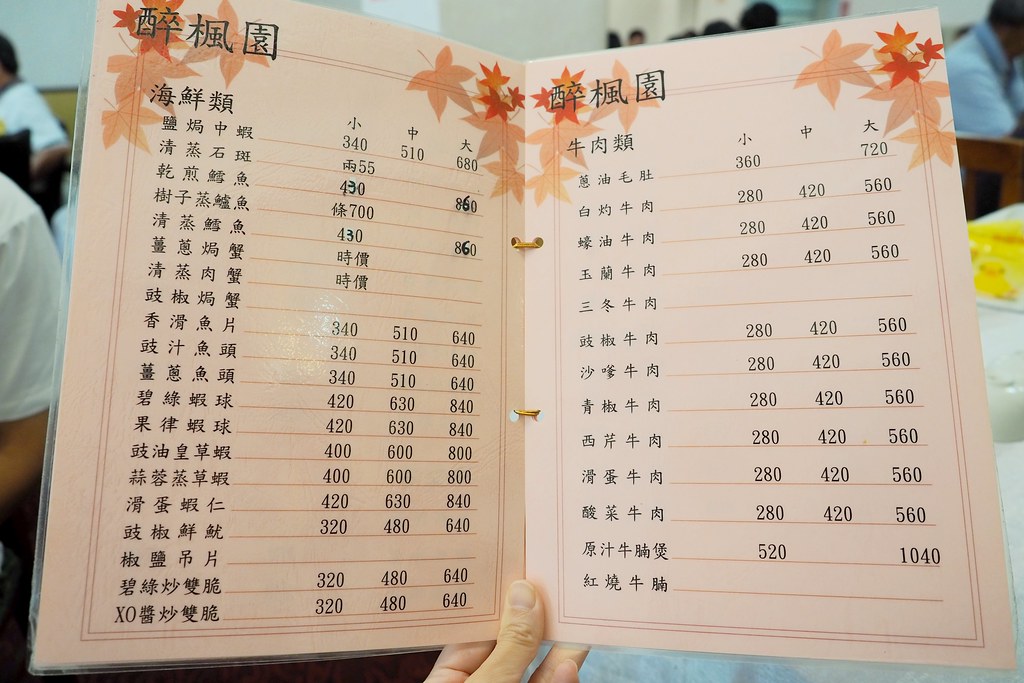 醉楓園
海鮮類 小 中 大
鹽焗中蝦 340 510 680
清蒸石斑 兩55
乾煎鱈魚 430 860
樹子蒸鱸魚 條700
清蒸鱈魚 430 860
薑蔥焗蟹 時價
清蒸肉蟹 時價
豉椒焗蟹
香滑魚片 340 510 640
豉汁魚頭 340 510 640
薑蔥魚頭 340 510 640
碧綠蝦球 420 630 840
果律蝦球 420 630 840
豉油皇草蝦 400 600 800
蒜蓉蒸草蝦 400 600 800
滑蛋蝦仁 420 630 840
豉椒鮮魷 320 480 640
椒鹽吊片
碧綠炒雙脆 320 480 640
XO醬炒雙脆 320 480 640
醉楓園
牛肉類 小 中 大
蔥油毛肚 360 720
白灼牛肉 280 420 560
蠔油牛肉 280 420 560
玉蘭牛肉 280 420 560
三冬牛肉
豉椒牛肉 280 420 560
沙嗲牛肉 280 420 560
青椒牛肉 280 420 560
西芹牛肉 280 420 560
滑蛋牛肉 280 420 560
酸菜牛肉 280 420 560
原汁牛腩煲 520 1040
紅燒牛腩